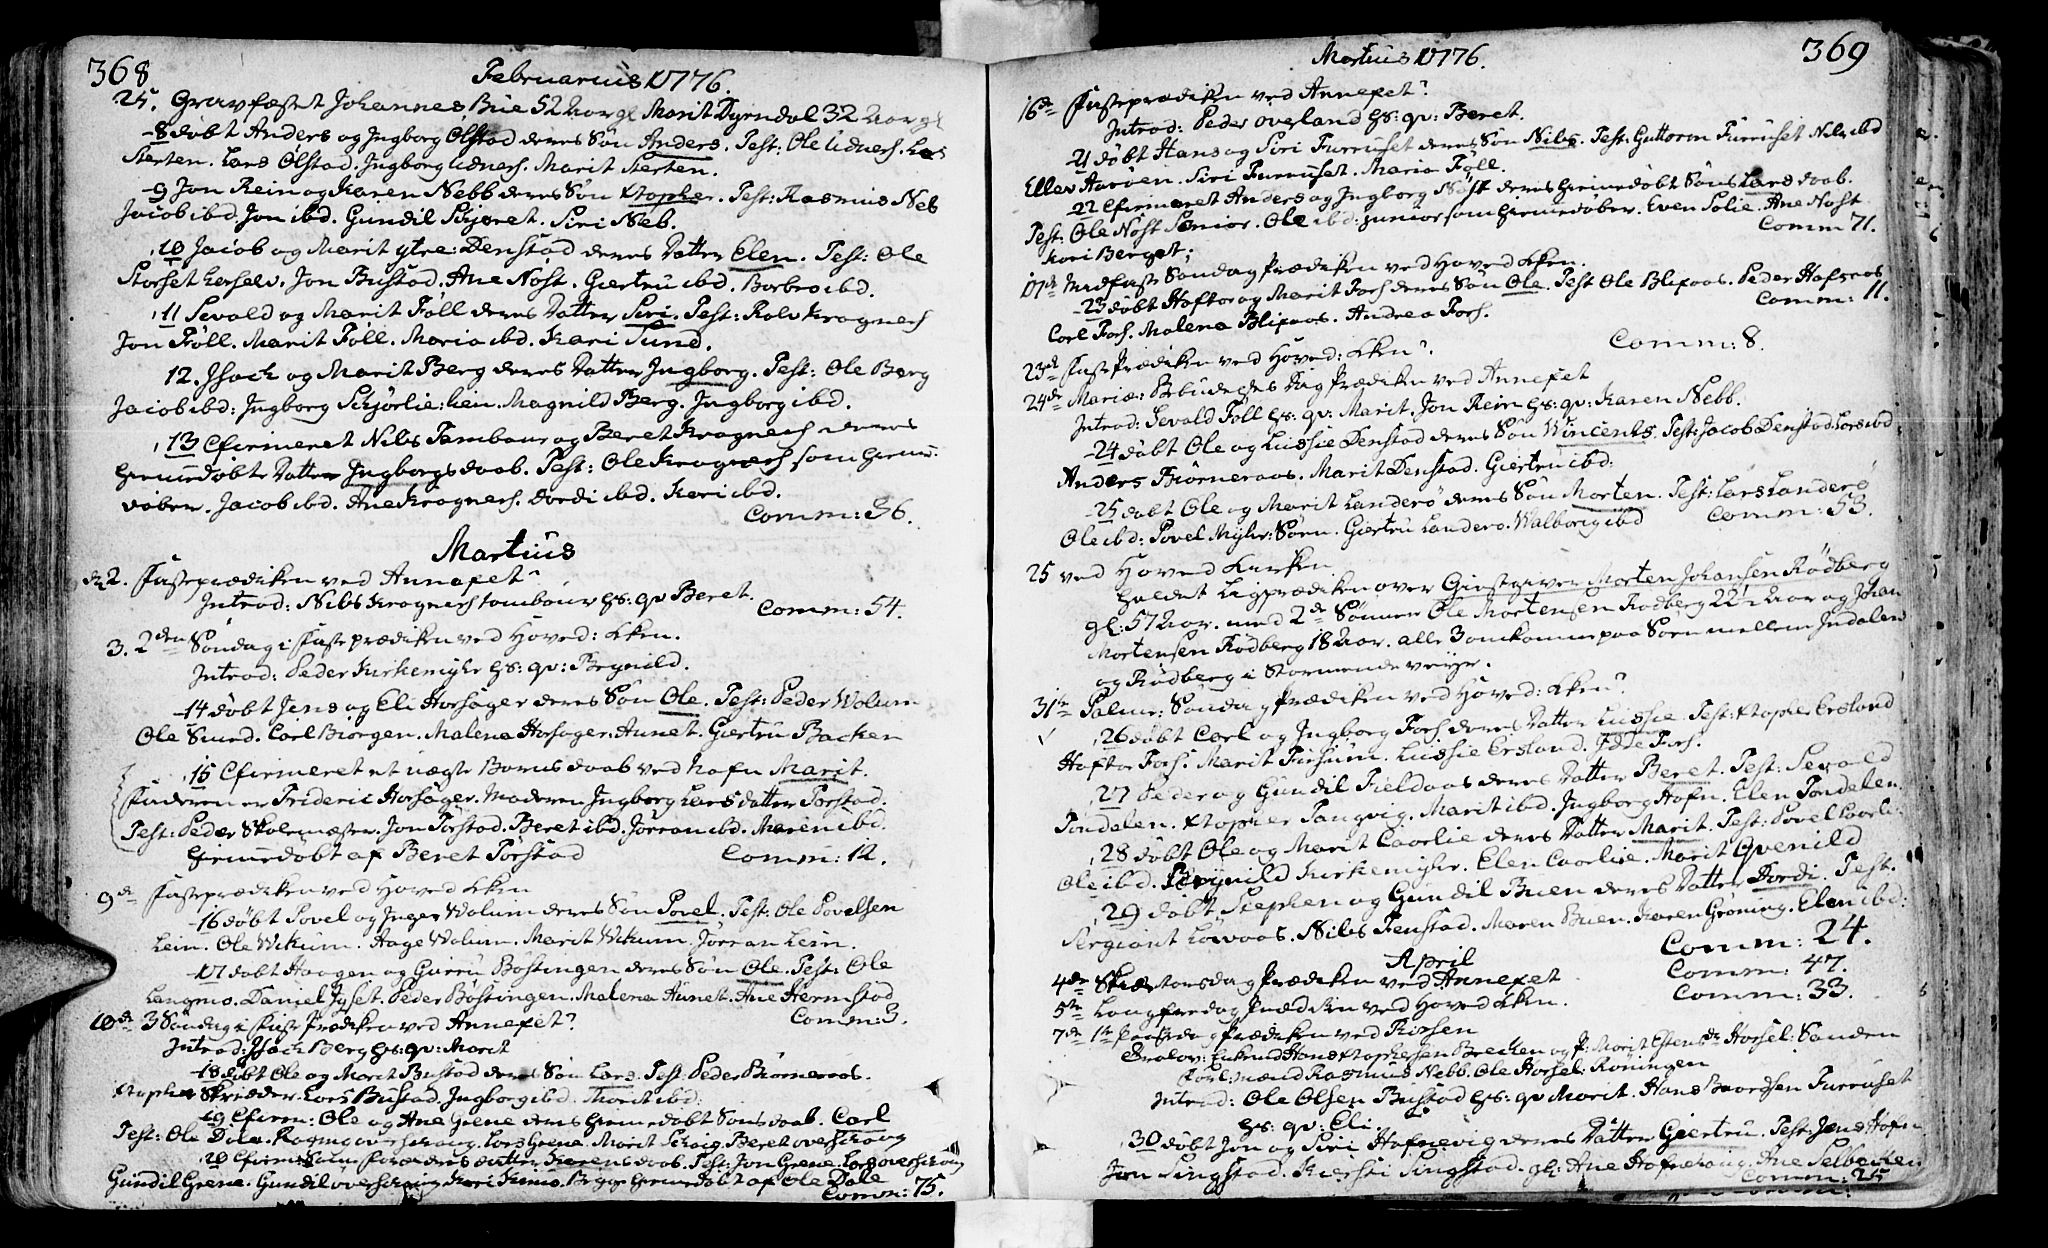 368
Februarius 1776.
25. Gravfæstet Johannes Bue 52 Aar gl. Marit Dyrndal 32 Aar gl.
8 døbt Anders og Ingborg Ølstad deres Søn Anders. Test: Ole Udnes. Lars
Sterten. Lars Ølstad. Ingborg Udnes. Marit Sterten.
9 Jon Rein og Karen Nebb deres Søn Xtopher. Test: Rasmus Neb
Jacob ibd. Jon ibd. Gundil Siri Neb.
10 Jacob og Marit ytre: Denstad deres Datter Elen. Test: Ole
Storset Jon Bustad. Ane Nøst. Giertru ibd. Borbro ibd.
11 Sevald og Marit Føll deres Datter Siri. Test: Rolv Kragnes
Jon Føll. Marit Føll. Maria ibd. Kari Sund.
12. Isach og Marit Berg deres Datter Ingborg. Test: Ole Berg
Jacob ibd: Ingborg Skjørlie: Magnild Berg. Ingborg ibd.
13 Cfirmeret Nils Tambour og Beret Kragnes deres
hiemedøbte Datter Ingborgs daab. Test: Ole Kragnes som hieme-
døber. Jacob ibd. Ane Kragnes. Dordi ibd. Kari ibd.
Comm: 56.
Martius
d. 2. Fasteprædiken ved Annexet
Introd: Nils Kragnes tambour hs: qv Beret.
Comm: 54.
3. 2den Søndag i Fasteprædiken ved Hoved: Kken.
Introd: Peder Kirkemyhr hs: qv: Brynild.
14 døbt Jens og Eli Horsager deres Søn Ole. Test: Peder Wolum
Ole Sund. Carl Biørgen. Malena Horsager. Aunet. Giertru Backen
15 Cfirmeret et uægte Barns daab ved nafn Marit.
Faderen er Frideric Horsager. Moderen Ingborg Larsdatter Torstad.
Test: Peder Skolemester. Jon Torstad. Beret ibd. Jørran ibd. Maren ibd.
hiemedøbt af Beret Torstad
Comm: 12.
9de Fasteprædiken ved Hoved Kken
16 døbt Povel og Inger Wolum deres Søn Povel. Test: Ole Povelsen
Lein. Ole Wikum. Aage Wolum. Marit Wikum. Jørran Lein.
17 døbt Haagen og Gurru Bøstingen deres Søn Ole. Test: Ole
Langmo. Daniel Peder Bøstingen. Malena Aunet. Ane Hermstad
Comm: 3.
10de 3 Søndag i Faste Prædiken ved Annexet
Introd: Isach Berg hs: qv: Marit
18 døbt Ole og Marit Bustad deres Søn Lars. Test: Peder Biørneraas.
Xtopher Skredder. Lars Bustad. Ingborg ibd.
19 Cfirm: Ole og Ane Grene deres hiemedøbt Søns daab. Carl
Test: Ole Dale. Lars Grene. Marit
20 Cfirm: deres datter Karens daab. Test: Jon Grene.
Gundil Grene. Gundil hiemedøbt af Ole Dale
Comm: 75.
369
Martius 1776.
16de Fasteprædiken ved Annexet
Introd: Peder Overland hs: qv: Beret.
21 døbt Hans og Siri Furruset deres Søn Nils. Test: Guttorm Furruset Nils ibd
Ellev Aarøen. Siri Furruset. Maria Føll.
22 Cfirmeret Anders og Ingborg Nøst deres hiemedøbt Søns Lars daab.
Test: Ole Nøst Senior. Ole ibd: junior som hiemedøber. Even Solie. Ane Nøst
Kari Berget;
Comm 71.
17de Midfaste Søndag Prædiken ved Hoved Kken.
23 døbt Haftor og Marit Fors deres Søn Ole. Test Ole Blixaas. Peder Hafraas
Carl Fors. Malena Blixaas. Andrea Fors.
Comm: 11.
23de Faste Prædiken ved Hoved: Kken.
Comm: 8.
24de Mariæ: Bebudelses Dag Prædiken ved Annexet
Introd: Sevald Føll hs: qv: Marit. Jon Rein hs: qv: Karen Nebb.
24 døbt Ole og Lussie Denstad deres Søn Wincents. Test: Jacob Denstad Lars ibd
Anders Biørneraas. Marit Denstad. Giertru ibd:
25 døbt Ole og Marit Landerø deres Søn Morten. Test: Lars Landerø
Ole ibd: Povel Myhr: Søren. Giertru Landerø. Walborig ibd
Comm: 53.
25 ved Hoved Kirken
holdet Ligprædiken over Giestgiver Morten Johansen Rødberg
gl: 57 Aar. med 2de Sønner Ole Mortensen Rødberg 22 Aar og Johan
Mortensen Rødberg 18 Aar. alle 3 omkomne paa Søen mellem Indalen
og Rødberg i Stormende veyr.
31te Palme: Søndag Prædiken ved Hoved: Kken.
26 døbt Carl og Ingborg Fors deres Datter Lussie. Test: Xtopher Ersland
Haftor Fors. Marit Lussie Ersland. Fors.
27 Peder og Gundil Fieldaas deres Datter Beret. Test: Sevald
Tøndelen. Xtopher Tangvig. Marit ibd. Ingborg Hafn. Elen Tøndelen.
28 døbt Ole og Marit Caarlie deres Datter Marit. Test: Povel Caarlie
Ole ibd. Brynild Kirkemyhr. Elen Caarlie. Marit Qvenild
29 døbt Stephen og Gundil Buen deres Datter Dordi. Test.
Sergiant Løwaas. Nils Fenstad. Maren Buen. Karen Grøning. Elen ibd:
Comm: 24.
April
4de Skiærtorsdag Prædiken ved Annexet
Comm: 47.
5te Langfredag Prædiken ved Hoved Kken.
Comm: 33.
7de 1te Paaskedag Prædiken ved Rissen
Trolov: Enkemd Hans Xtophersen Brecken og P: Marit Estens dr Horsel: Sanden
Forl: mænd Rasmus Nebb. Ole Horsel: Røningen
Introd: Ole Olsen Bustad hs: qv Marit. Hans Baardsen Furruset
hs: qv: Eli.
30 døbt Jon og Siri Hafnevig deres Datter Giertru. Test: Jens Hafn
Jon Singstad. Kiersti Singstad. gl: Ane Ane Selbecken
Comm: 25